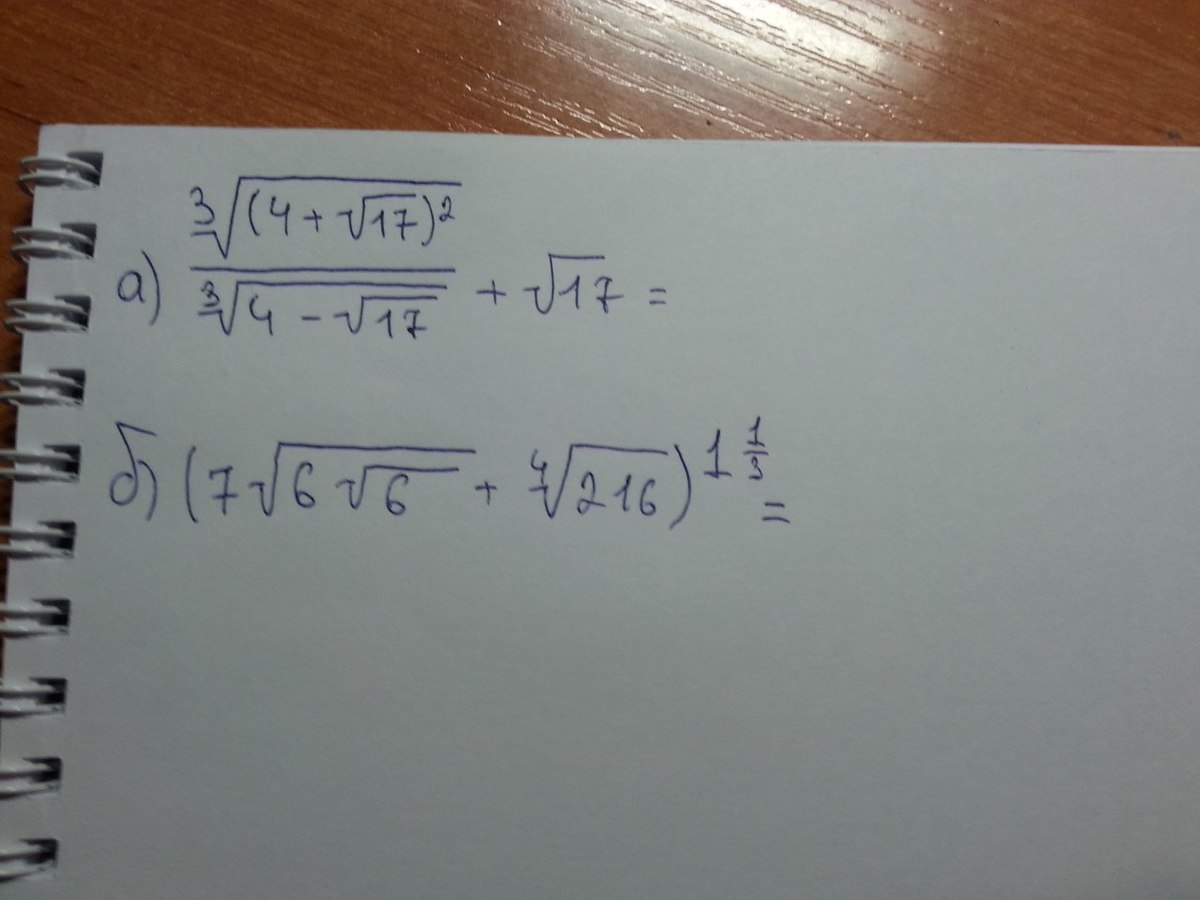 а) ∛((4 + √17)²) / ∛(4 − √17) + √17 =
б) (7√(6√6) + ∜216)^(1 1/3) =